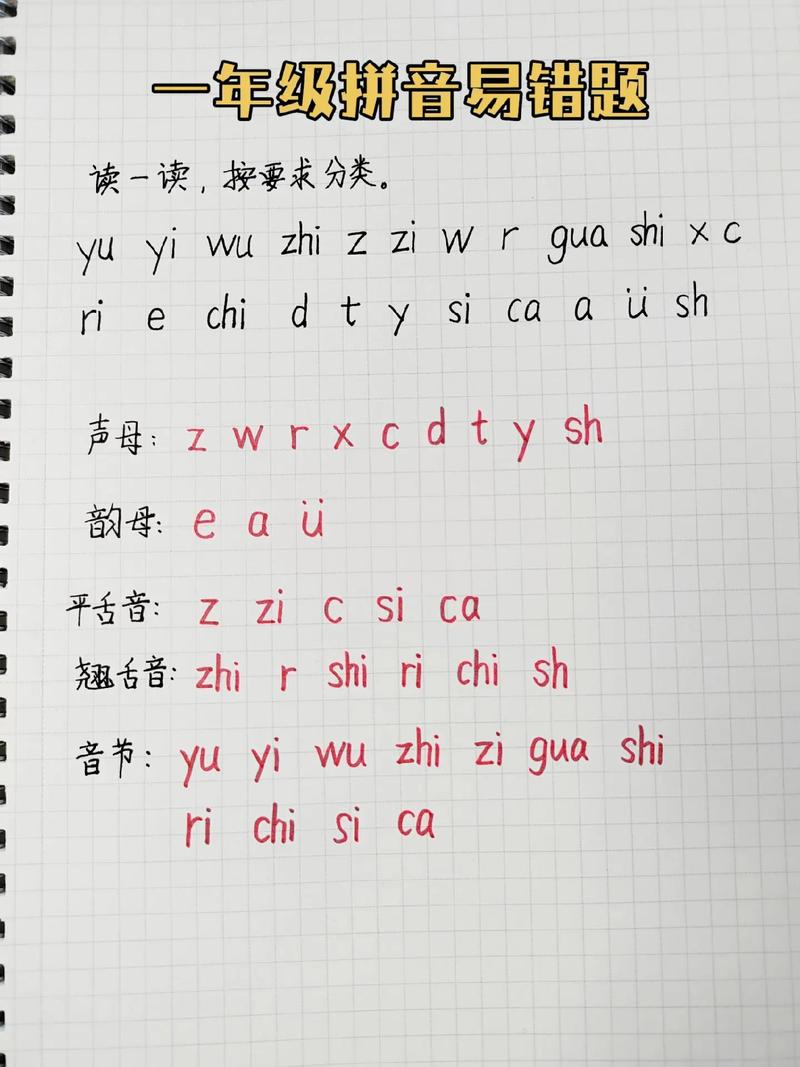 一年级拼音易错题
读一读，按要求分类。
yu yi wu zhi z zi w r gua shi x c
ri e chi d t y si ca a ü sh
声母: z w r x c d t y sh
韵母: e a ü
平舌音: z zi c si ca
翘舌音: zhi r shi ri chi sh
音节: yu yi wu zhi zi gua shi
ri chi si ca